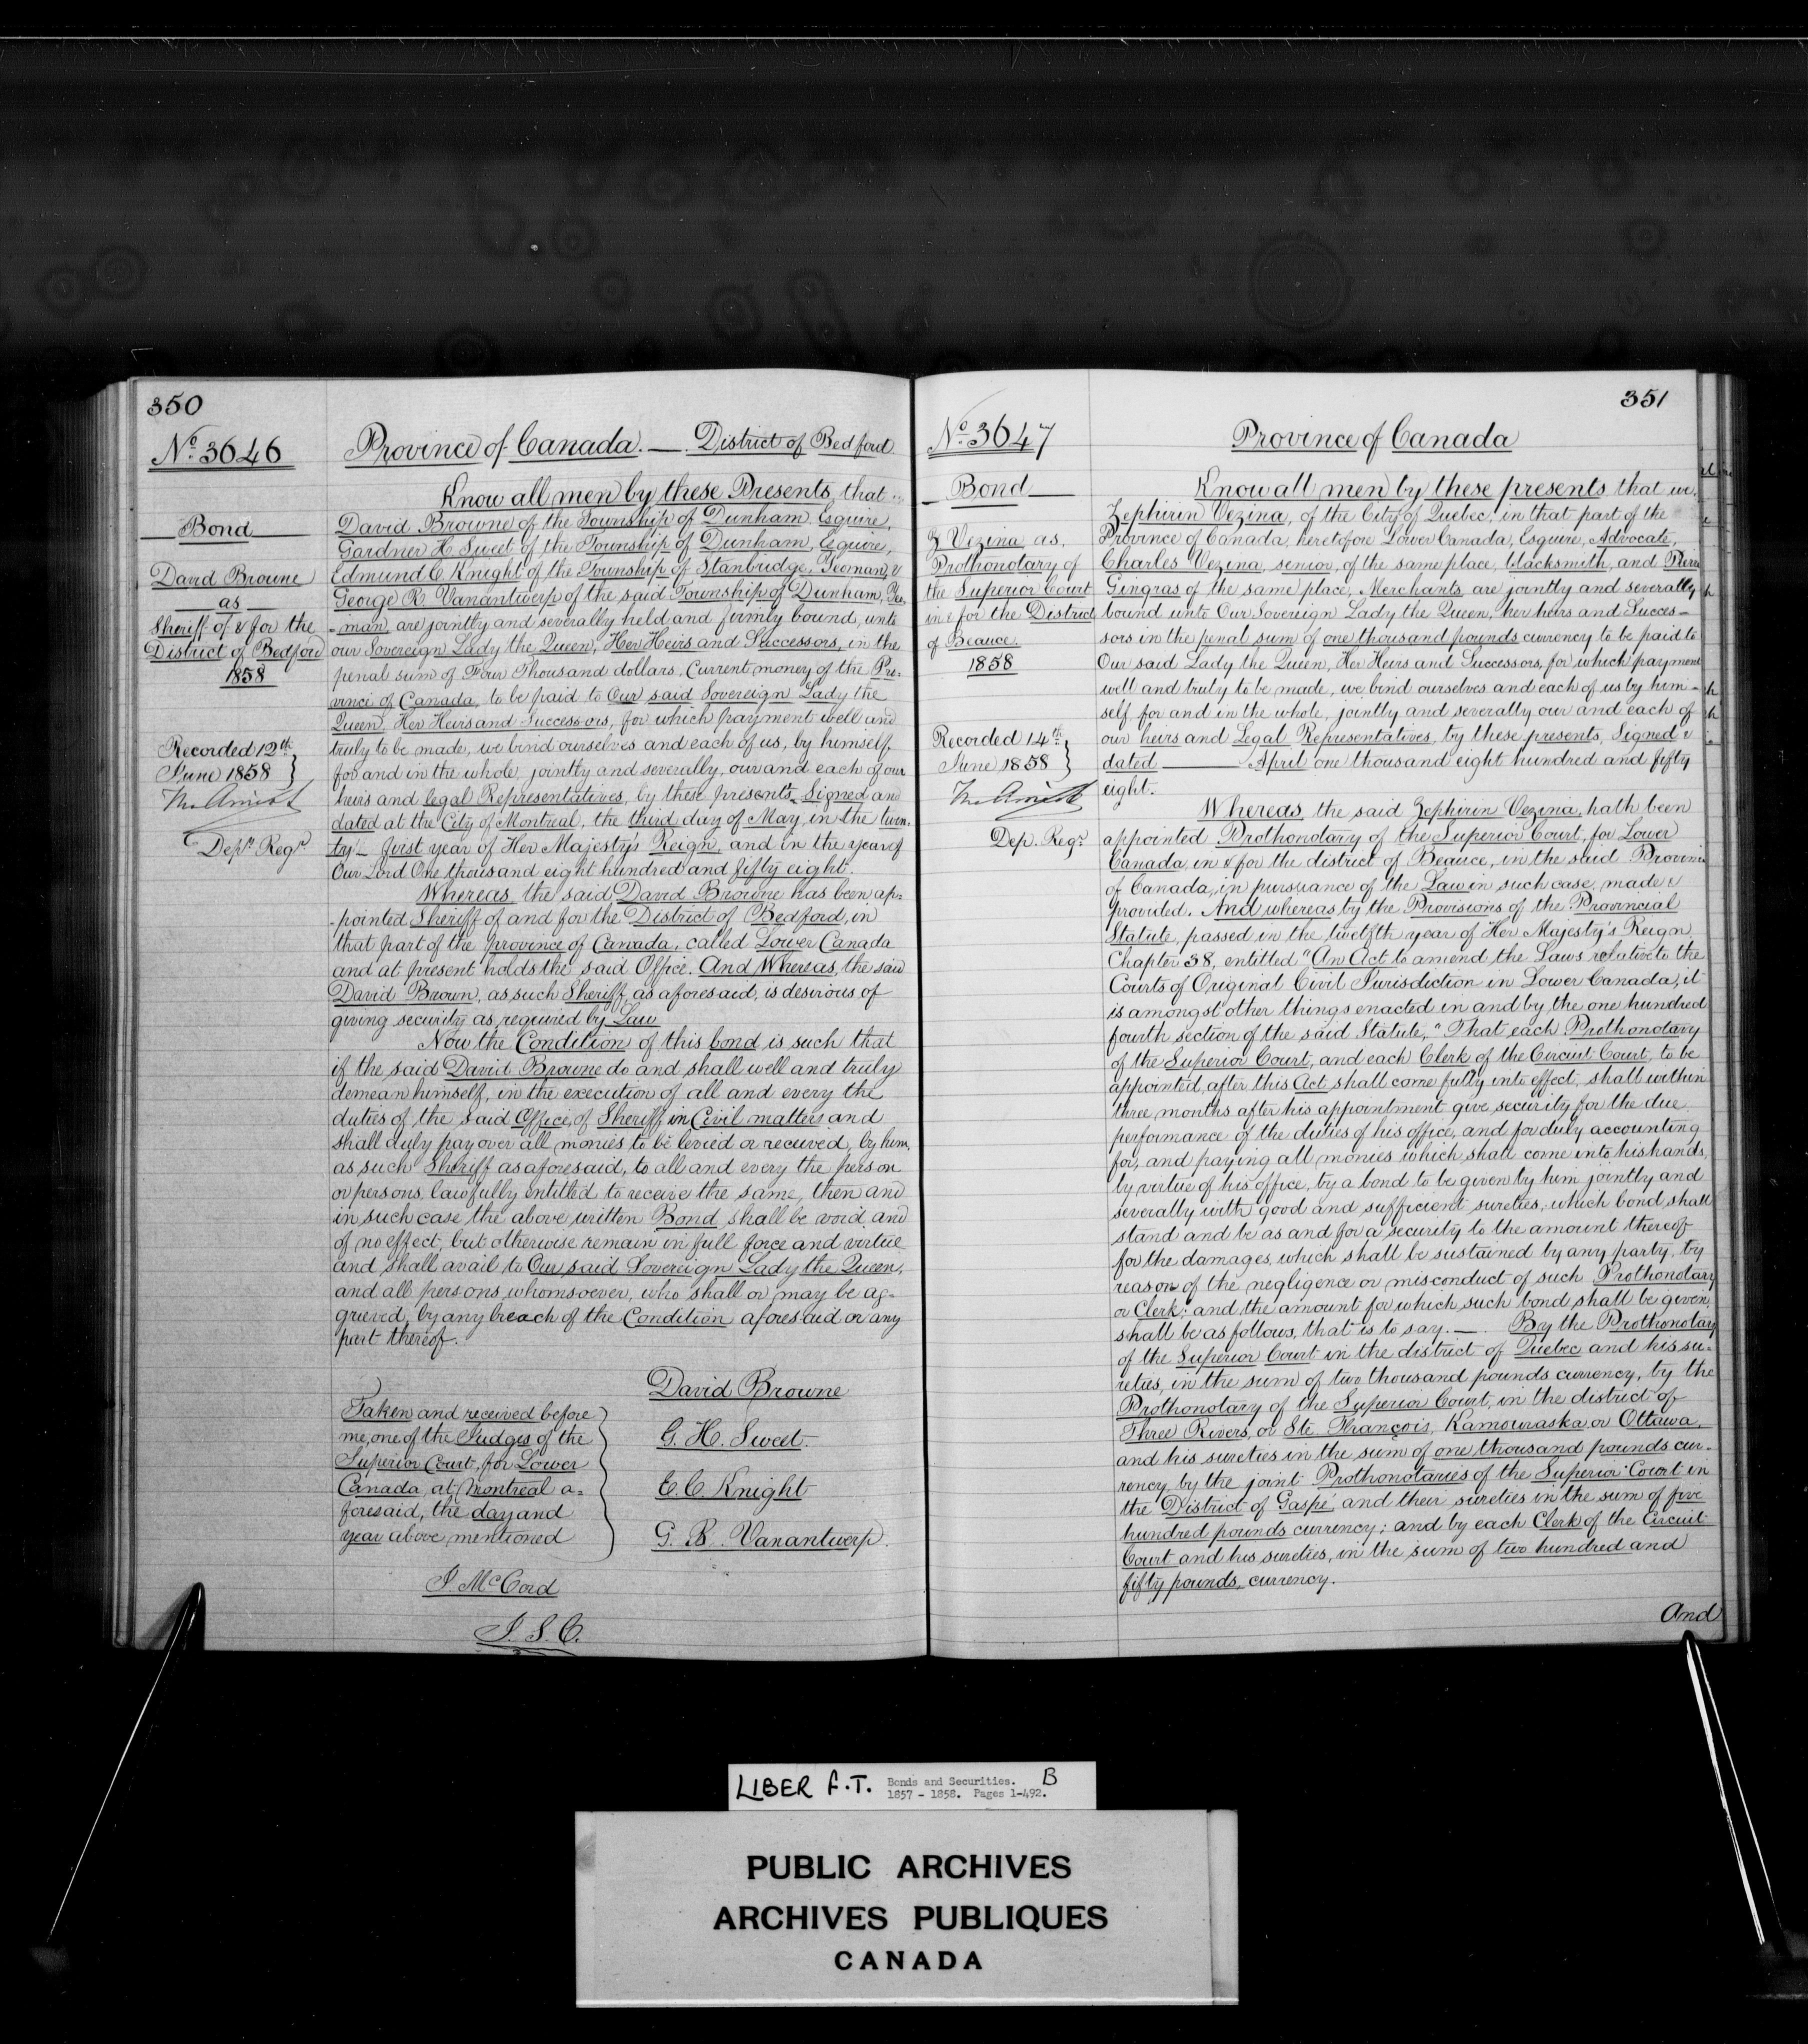 350
No. 3646
Bond
David Browne
as
Sheriff of & for the
District of Bedford
1858
Recorded 12th
June 1858
Depy Regr
Province of Canada. — District of Bedford
Know all men by these Presents, that
David Browne of the Township of Dunham Esquire,
Gardner H Sweet of the Township of Dunham, Esquire,
Edmund C Knight of the Township of Stanbridge, Yeoman, &
George R. Vanantwerp of the said Township of Dunham, Yeo-
-man, are jointly and severally held and firmly bound, unto
our Sovereign Lady the Queen, Her Heirs and Successors, in the
penal sum of Four Thousand dollars, Current money of the Pro-
vince of Canada, to be paid to Our said Sovereign Lady the
Queen, Her Heirs and Successors, for which payment well and
truly to be made, we bind ourselves and each of us, by himself,
for and in the whole jointly and severally, our and each of our
heirs and legal Representatives, by these presents. Signed and
dated at the City of Montreal, the third day of May, in the twen-
ty-first year of Her Majesty's Reign, and in the year of
Our Lord One thousand eight hundred and fifty eight.
Whereas, the said David Browne has been ap-
-pointed Sheriff of and for the District of Bedford, in
that part of the province of Canada, called Lower Canada
and at present holds the said Office. And Whereas, the said
David Brown, as such Sheriff, as aforesaid, is desirous of
giving security as required by Law
Now the Condition of this bond is such that
if the said David Browne do and shall well and truly
demean himself, in the execution of all and every the
duties of the said Office, of Sheriff, in Civil matters and
shall duly pay over all monies to be levied or received, by him,
as such Sheriff as aforesaid, to all and every the person
or persons, lawfully entitled to receive the same, then and
in such case the above written Bond shall be void, and
of no effect, but otherwise remain in full force and virtue
and shall avail to Our said Sovereign Lady the Queen,
and all persons, whomsoever, who shall or may be ag-
grieved, by any breach of the Condition aforesaid or any
part thereof.
Taken and received before
me, one of the Judges of the
Superior Court, for Lower
Canada, at Montreal a-
foresaid, the day and
year above mentioned
J. McCord
J. S. C.
David Browne
G. H. Sweet.
E. C. Knight
G. R. Vanantwerp.
351
No. 3647
Bond
Z Vezina as,
Prothonotary of
the Superior Court
in & for the District
of Beauce.
1858
Recorded 14th
June 1858
Dep. Regr
Province of Canada
Know all men by these presents that we,
Zephirin Vezina, of the City of Quebec, in that part of the
Province of Canada, heretofore Lower Canada, Esquire, Advocate,
Charles Vezina, senior, of the same place, blacksmith, and Pierre
Gingras of the same place, Merchants, are jointly and severally
bound unto Our Sovereign Lady the Queen, her heirs and Succes-
sors in the penal sum of one thousand pounds currency to be paid to
Our said Lady the Queen, Her Heirs and Successors, for which payment
well and truly to be made, we bind ourselves and each of us by him-
self for and in the whole, jointly and severally our and each of
our heirs and Legal Representatives, by these presents, Signed &
dated — April one thousand eight hundred and fifty
eight.
Whereas, the said Zephirin Vezina, hath been
appointed Prothonotary of the Superior Court, for Lower
Canada in & for the district of Beauce, in the said Province
of Canada, in pursuance of the Law in such case, made &
provided. And whereas by the Provisions of the Provincial
Statute, passed in the twelfth year of Her Majesty's Reign,
Chapter 38, entitled "An Act to amend the Laws relative to the
Courts of Original Civil Jurisdiction in Lower Canada, it
is amongst other things enacted in and by the one hundred
fourth section of the said Statute, "That each Prothonotary
of the Superior Court, and each Clerk of the Circuit Court, to be
appointed, after this Act shall come fully into effect, shall within
three months after his appointment give security for the due
performance of the duties of his office, and for duly accounting
for, and paying all monies which shall come into his hands,
by virtue of his office, by a bond to be given by him jointly and
severally with good and sufficient sureties, which bond shall
stand and be as and for a security to the amount thereof
for the damages, which shall be sustained by any party, by
reason of the negligence or misconduct of such Prothonotary
or Clerk; and the amount for which such bond shall be given,
shall be as follows, that is to say. — By the Prothonotary
of the Superior Court in the district of Quebec and his su-
reties, in the sum of two thousand pounds currency, by the
Prothonotary of the Superior Court, in the district of
Three Rivers, or Ste. François, Kamouraska or Ottawa,
and his sureties in the sum of one thousand pounds cur-
rency, by the joint Prothonotaries of the Superior Court in
the District of Gaspé, and their sureties in the sum of five
hundred pounds currency; and by each Clerk of the Circuit
Court and his sureties, in the sum of two hundred and
fifty pounds, currency.
And
LIBER F.T. Bonds and Securities. B
1857 - 1858. Pages 1-492.
PUBLIC ARCHIVES
ARCHIVES PUBLIQUES
CANADA